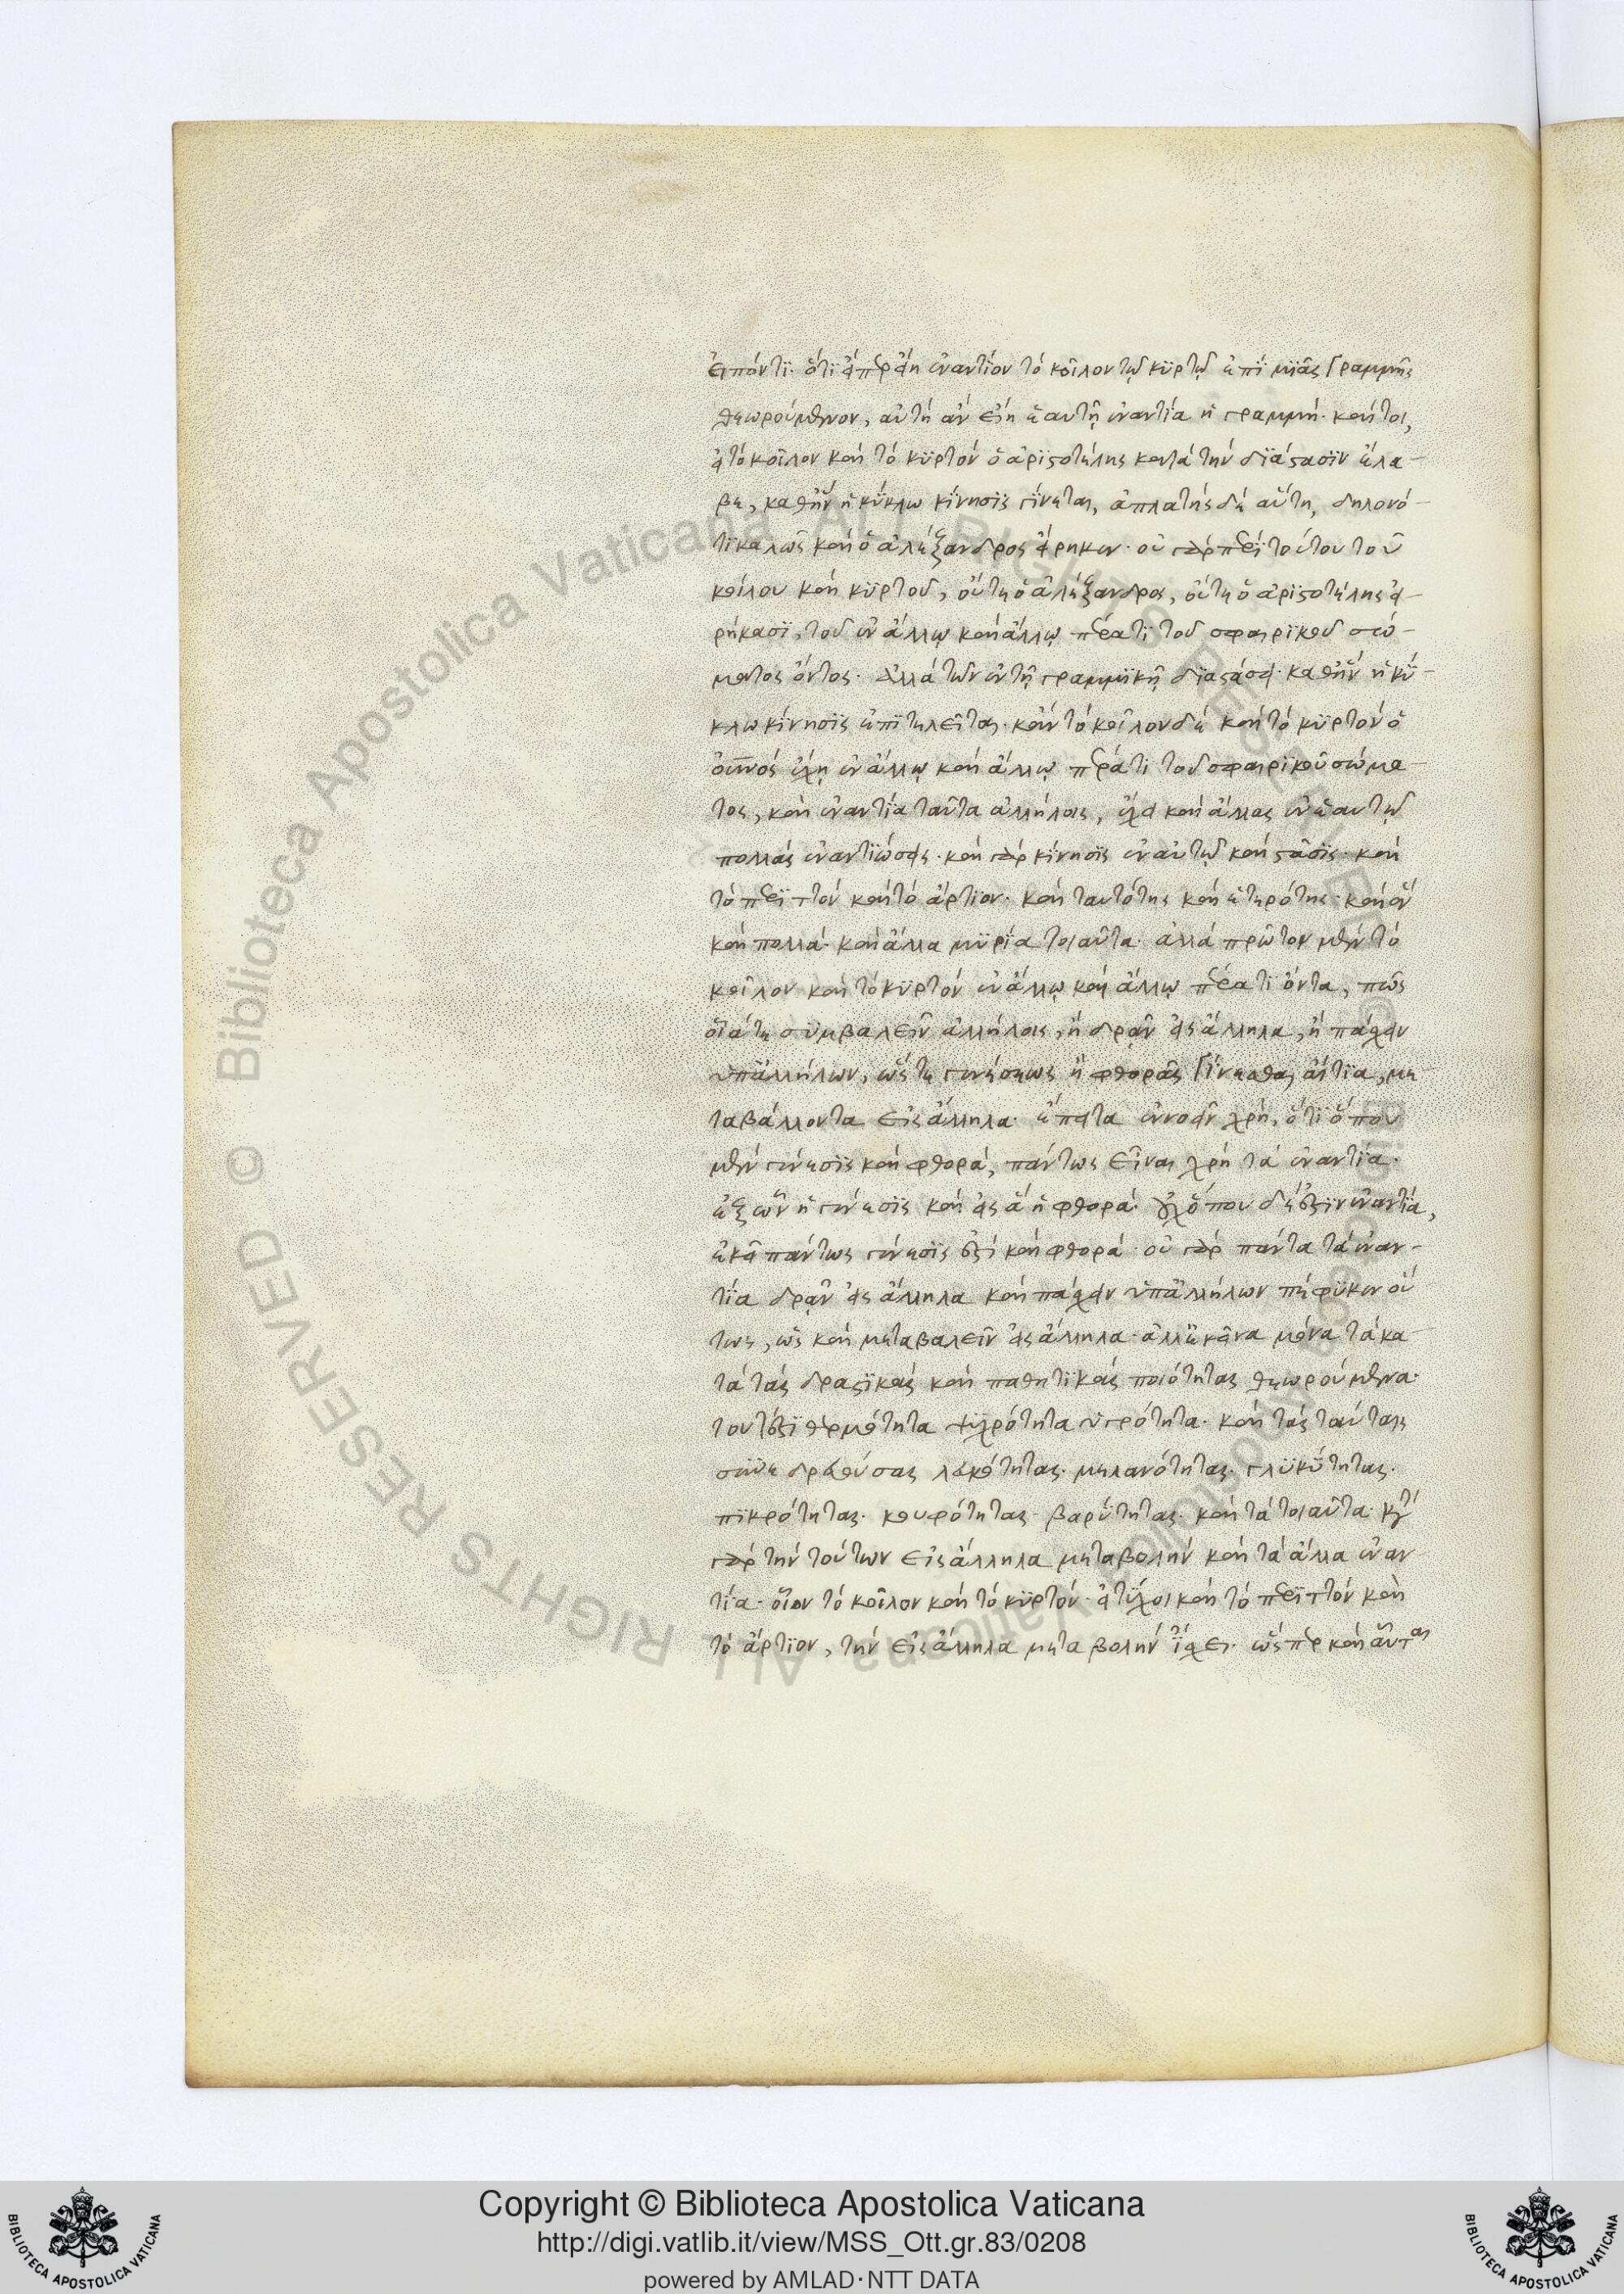 εἰπόντι· ὅτι εἴπερ εἴη ἐναντίον τὸ κοῖλον τῷ κυρτῷ ἐπὶ μιᾶς γραμμῆς
θεωρούμενον, αὐτὴ ἂν εἴη ἑαυτῇ ἐναντία ἡ γραμμή· καίτοι,
εἰ τὸ κοῖλον καὶ τὸ κυρτὸν ὁ ἀριστοτέλης κατὰ τὴν διάστασιν ἔλα-
βε, καθ' ἣν ἡ κύκλω κίνησις γίνεται, ἀπλατὴς δὲ αὕτη, δηλονό-
τι καλῶς καὶ ὁ ἀλέξανδρος εἴρηκεν· οὐ γὰρ περὶ τούτου τοῦ
κοίλου καὶ κυρτοῦ, οὔτε ὁ ἀλέξανδρος, οὔτε ὁ ἀριστοτέλης εἰ-
ρήκασι, τοῦ ἐν ἄλλῳ καὶ ἄλλῳ πέρατι τοῦ σφαιρικοῦ σώ-
ματος ὄντος· ἀλλὰ τῶν ἐν τῇ γραμμικῇ διαστάσει· καθ' ἣν ἡ κύ-
κλω κίνησις ἐπιτελεῖται· κἂν τὸ κοῖλον δὲ καὶ τὸ κυρτὸν ὁ
οὐνος ἔχῃ ἐν ἄλλῳ καὶ ἄλλῳ πέρατι τοῦ σφαιρικοῦ σώμα-
τος, καὶ ἐναντία ταῦτα ἀλλήλοις, ἔχει καὶ ἄλλας ἐν ἑαυτῷ
πολλὰς ἐναντιώσεις· καὶ γὰρ κίνησις ἐν αὐτῷ καὶ στάσις· καὶ
τὸ περιττὸν καὶ τὸ ἄρτιον· καὶ ταυτότης καὶ ἑτερότης· καὶ ἓν
καὶ πολλά· καὶ ἄλλα μυρία τοιαῦτα· ἀλλὰ πρῶτον μὲν τὸ
κοῖλον καὶ τὸ κυρτὸν ἐν ἄλλῳ καὶ ἄλλῳ πέρατι ὄντα, πῶς
οἷά τε συμβαλεῖν ἀλλήλοις, ἢ δρᾷν εἰς ἄλληλα, ἢ πάσχειν
ὑπ' ἀλλήλων, ὥστε γενέσεως ἢ φθορᾶς γίνεσθαι αἴτια, με
ταβάλλοντα εἰς ἄλληλα· ἔπειτα ἐννοεῖν χρή, ὅτι ὅπου
μὲν γένεσις καὶ φθορά, πάντως εἶναι χρὴ τὰ ἐναντία·
ἐξ ὧν ἡ γένεσις καὶ εἰς ἃ ἡ φθορά· οὐχ ὅπου δέ ἐστιν ἐναντία,
ἐκεῖ πάντως γένεσις ἐστὶ καὶ φθορά· οὐ γὰρ πάντα τὰ ἐναν-
τία δρᾷν εἰς ἄλληλα καὶ πάσχειν ὑπ' ἀλλήλων πέφυκεν οὕ
τως, ὡς καὶ μεταβαλεῖν εἰς ἄλληλα· ἀλλ' ἐκεῖνα μόνα τὰ κα-
τὰ τὰς δραστικὰς καὶ παθητικὰς ποιότητας θεωρούμενα·
τουτέστι θερμότητα ψυχρότητα ὑγρότητα· καὶ τὰς ταύταις
συνεδρευούσας λευκότητας· μελανότητας· γλυκύτητας·
πικρότητας· κουφότητας· βαρύτητας· καὶ τὰ τοιαῦτα· κατὰ
γὰρ τὴν τούτων εἰς ἄλληλα μεταβολὴν καὶ τὰ ἄλλα ἐναν
τία· οἷον τὸ κοῖλον καὶ τὸ κυρτόν· εἰ τύχοι καὶ τὸ περιττὸν καὶ
τὸ ἄρτιον, τὴν εἰς ἄλληλα μεταβολὴν ἴσχει· ὥσπερ καὶ αὗται
Copyright © Biblioteca Apostolica Vaticana
http://digi.vatlib.it/view/MSS_Ott.gr.83/0208
powered by AMLAD·NTT DATA